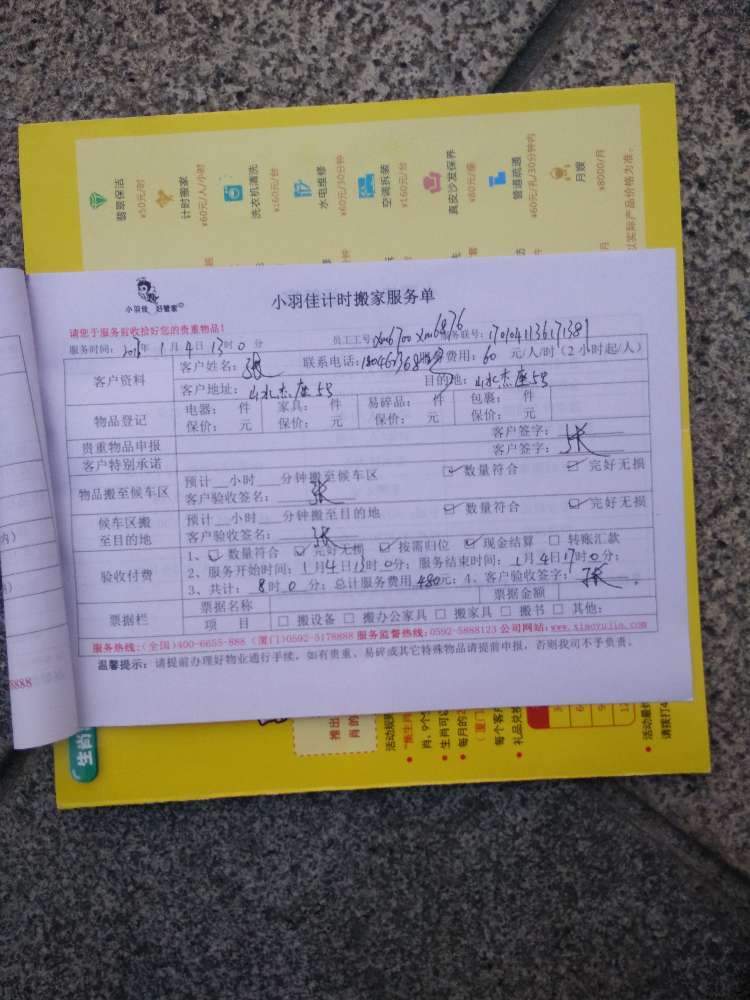 翡翠保洁
¥50元/时
计时搬家
¥60元/人/小时
洗衣机清洗
¥160元/台
水电维修
¥60元/30分钟
空调拆装
¥160元/台
真皮沙发保养
¥80元/座
管道疏通
¥60元/孔/30分钟内
月嫂
¥8000/月
以实际产品价格为准。
小羽佳 好管家
小羽佳计时搬家服务单
请您于服务前收拾好您的贵重物品!
服务时间:2017年1月4日13时0分 员工工号:xm6700 xm6876 服务联号:
客户资料
客户姓名:张 联系电话: 费用:60元/人/时(2小时起/人)
客户地址:山水杰座5号 目的地:山水杰座5号
物品登记
电器: 件 家具: 件 易碎品: 件 包裹: 件
保价: 元 保价: 元 保价: 元 保价: 元
贵重物品申报 客户签字:张
客户特别承诺 客户签字:
物品搬至候车区
预计__小时___分钟搬至候车区 ☑数量符合 ☑完好无损
客户验收签名:张
候车区搬至目的地
预计__小时___分钟搬至目的地 ☑数量符合 ☑完好无损
客户验收签名:张
验收付费
1、☑数量符合 ☑完好无损 ☑按需归位 ☑现金结算 □转账汇款
2、服务开始时间:1月4日13时0分;服务结束时间:1月4日17时0分;
3、共计:8时0分;总计服务费用480元;4、客户验收签字:张;
票据栏
票据名称 票据金额
项 目 □搬设备 □搬办公家具 □搬家具 □搬书 □其他:
服务热线:(全国)400-6655-888 (厦门)0592-5178888 服务监督热线:0592-5888123 公司网站:www.xiaoyujia.com
温馨提示:请提前办理好物业通行手续,如有贵重、易碎或其它特殊物品请提前申报,否则我司不予负责。
8888
生肖
推出
肖的
活动规则
肖,9个
• 生肖可以
• 每月的
(厦门
每个客户
• 礼品兑换
• 活动最终
请拨打4